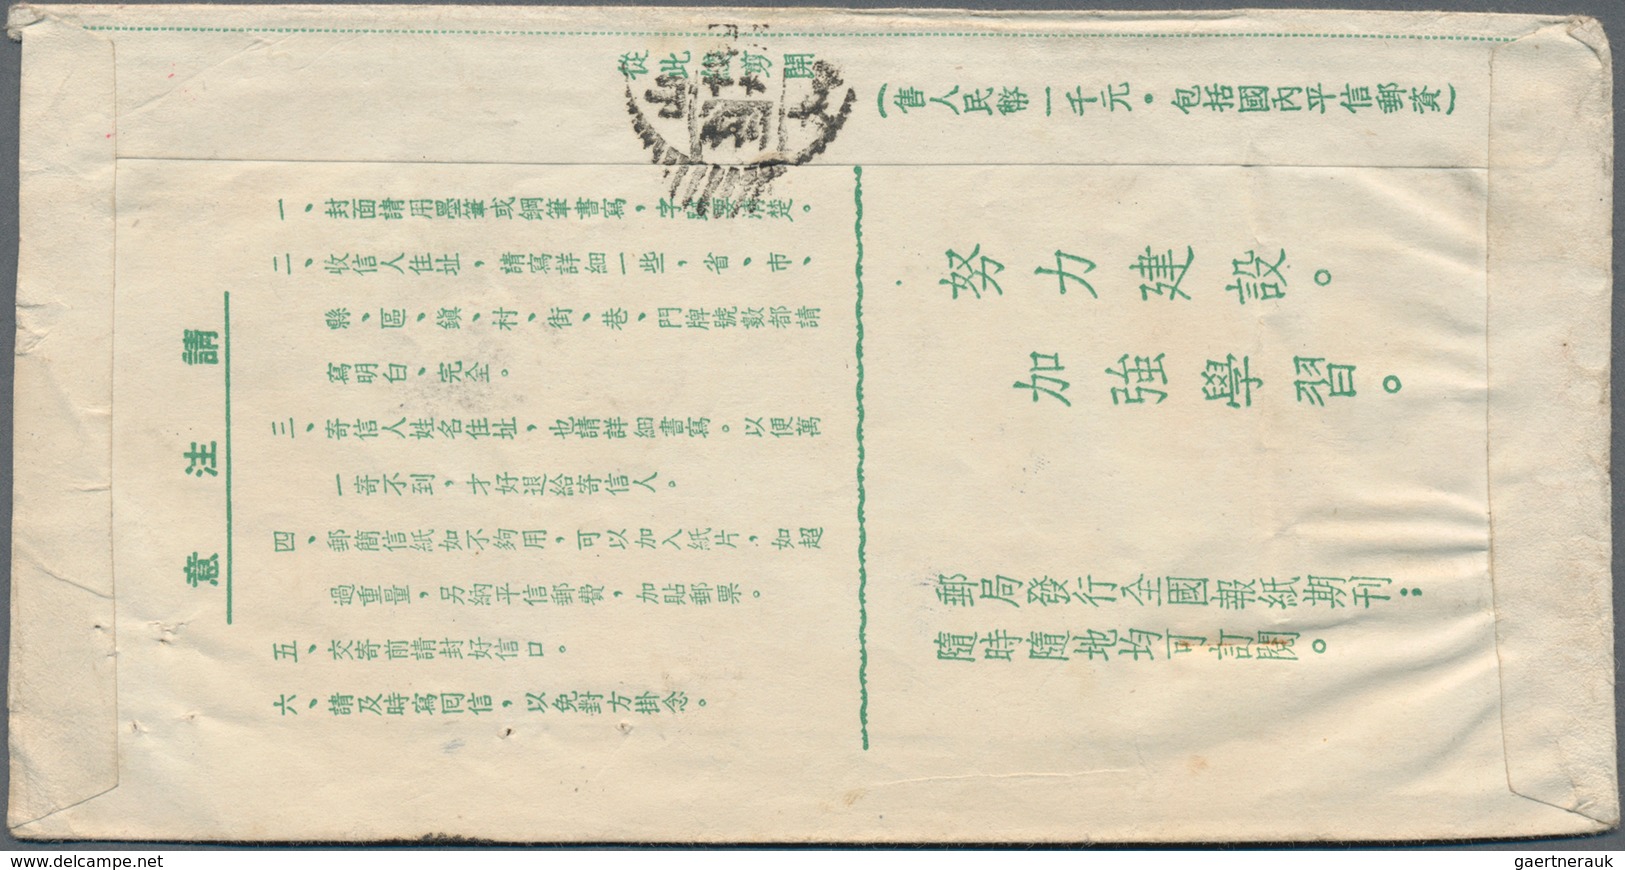 從此線剪開
(售人民幣一千元·包括國內平信郵資)
請注意
一、封面請用墨筆或鋼筆書寫，字跡要清楚。
二、收信人住址，請寫詳細一些，省、市、
縣、區、鎮、村、街、巷、門牌號數都請
寫明白、完全。
三、寄信人姓名住址，也請詳細書寫。以便萬
一寄不到，才好退給寄信人。
四、郵簡信紙如不夠用，可以加入紙片，如超
過重量，另納平信郵費，加貼郵票。
五、交寄前請封好信口。
六、請及時寫囘信，以免對方掛念。
努力建設。
加強學習。
郵局發行全國報紙期刊；
隨時隨地均可訂閱。
www.delcampe.net
gaertnerauk